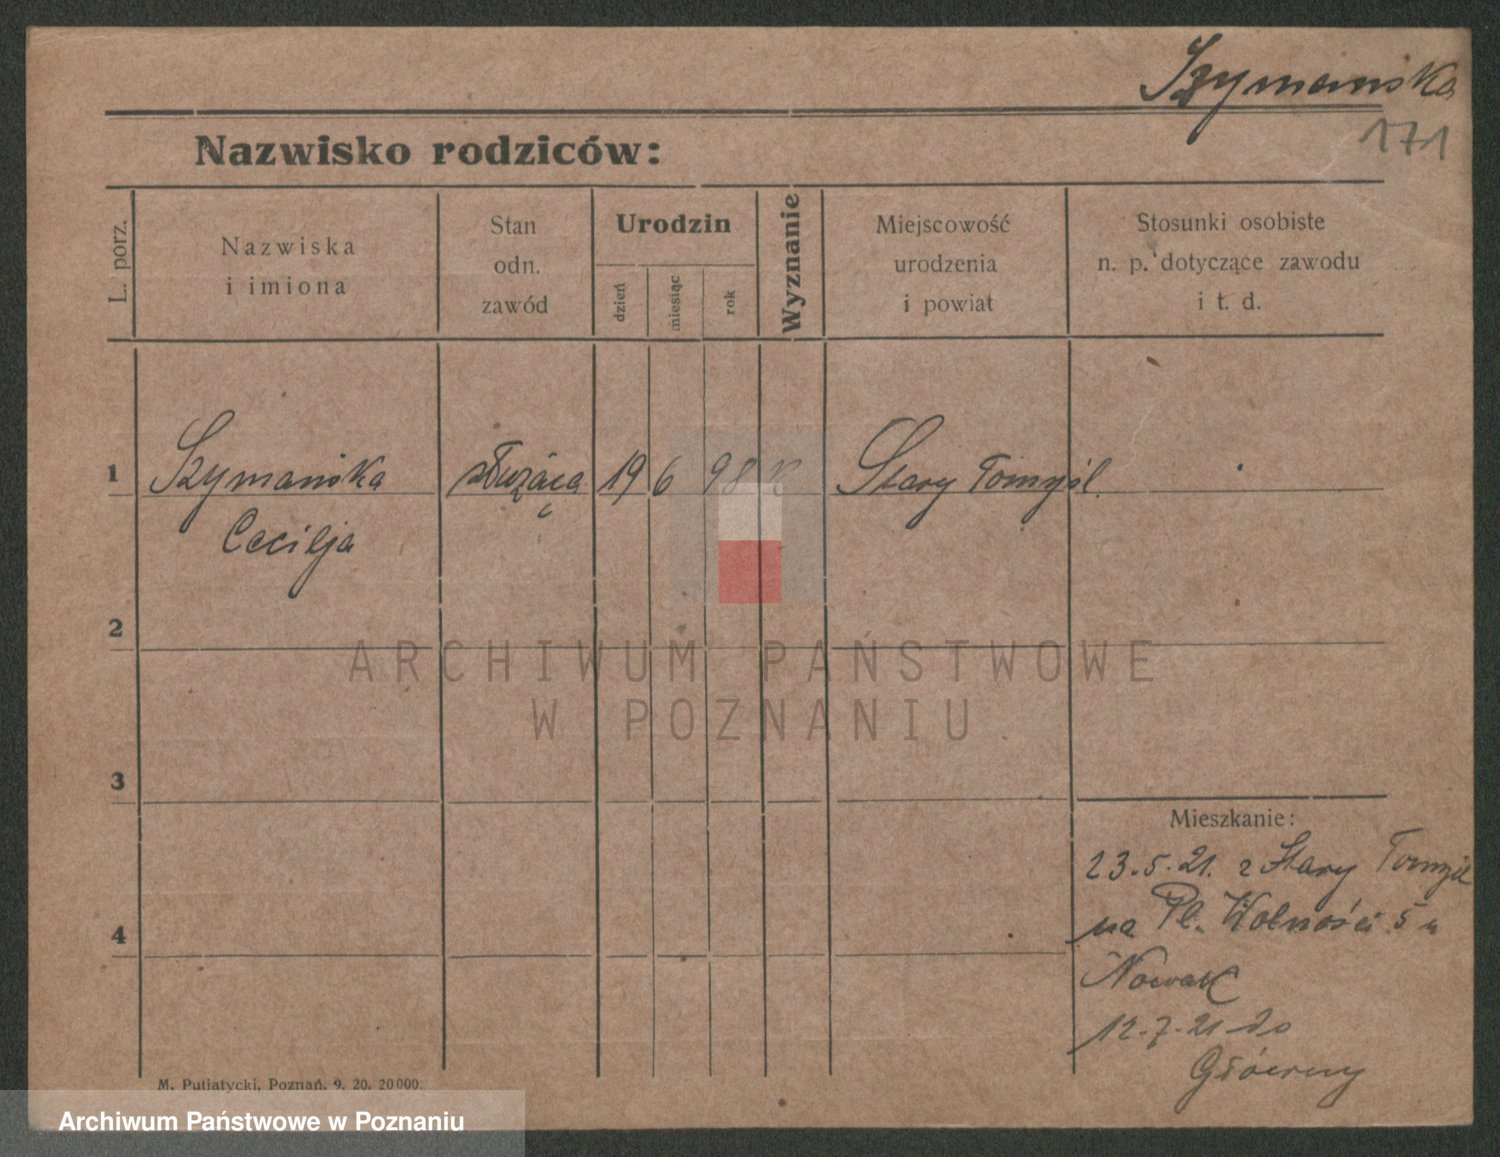 Szymańska
171
Nazwisko rodziców:
L. porz.
Nazwiska
i imiona
Stan
odn.
zawód
Urodzin
dzień
miesiąc
rok
Wyznanie
Miejscowość
urodzenia
i powiat
Stosunki osobiste
n. p. dotyczące zawodu
i t. d.
1 Szymańska służąca 19 6 98 K Stary Tomyśl.
Cecilja
2
ARCHIWUM PAŃSTWOWE
W POZNANIU
3
Mieszkanie:
23.5.21. z Stary Tomyśl
na Pl. Wolności 5 u
4
Nowak
12.7.21 do
M. Putiatycki, Poznań, 9. 20. 20000.
Archiwum Państwowe w Poznaniu